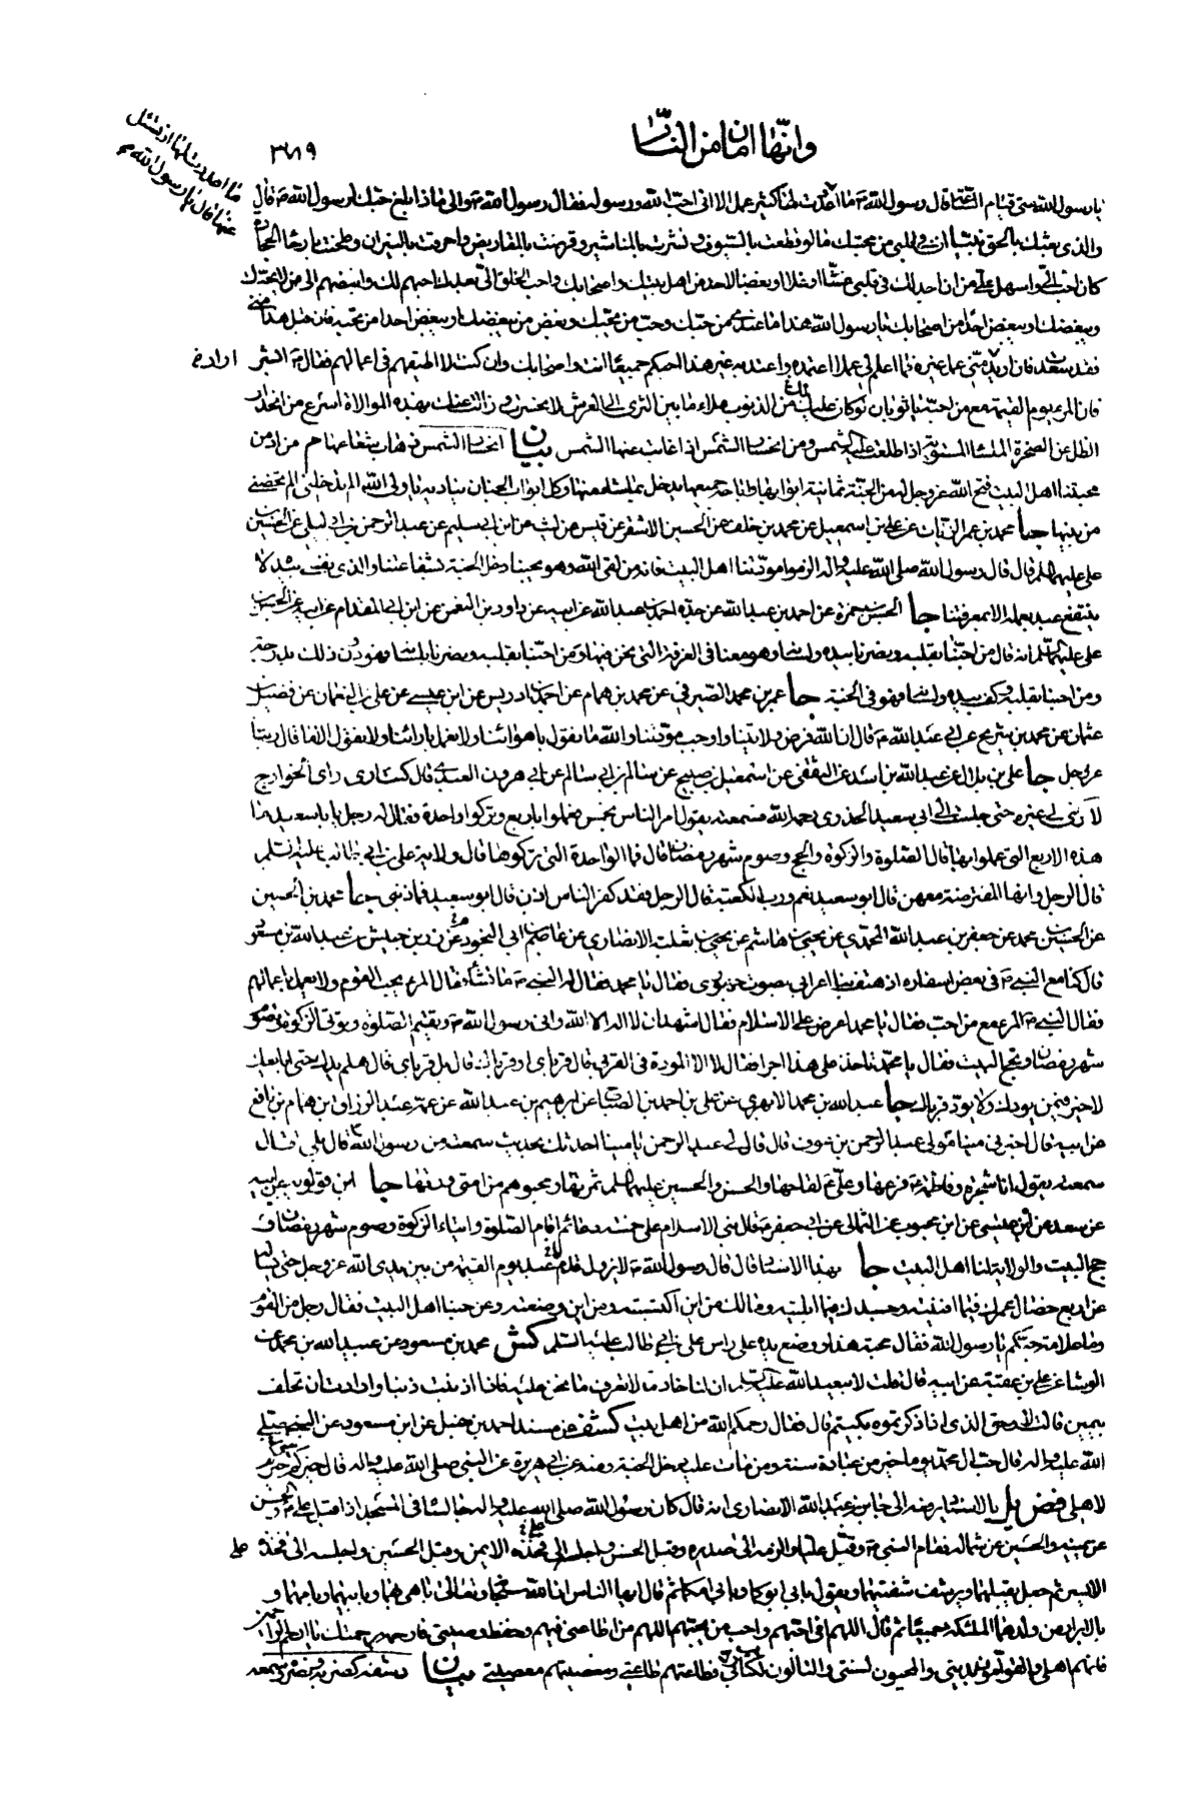 وانها امان من النار
٣٨٩
ما اعددت لها اذ تسئل
عنها قال يا رسول الله
يا رسول الله متى قيام الساعة قال رسول الله ص ما اعددت لها كثير عمل الا انى احب الله ورسوله فقال رسول الله ص والى ماذا بلغ حبك لرسول الله ص قال
والذى بعثك بالحق نبيا ان فى قلبى من محبتك ما لو قطعت بالسيوف ونشرت بالمناشير وقرضت بالمقاريض واحرقت بالنيران وطحنت بارحاء الحجارة
كان احب الى واسهل على من ان اجد لك فى قلبى غشا او غلا او بغضا لاحد من اهل بيتك واصحابك واحب الخلق الى بعدك احبهم لك وابغضهم الى من لا يحبك
ويبغضك او يبغض احدا من اصحابك يا رسول الله هذا ما عندى من حبك وحب من يحبك وبغض من يبغضك او يبغض احدا من تحبه فان قبل هذا منى
فقد سعدت وان اريد منى عمل غيره فما اعلم لى عملا اعتمده واعتد به غير هذا احبكم جميعا انت واصحابك وان كنت لا اطيقهم فى اعمالهم فقال ص ابشر
فان المرء يوم القيمة مع من احبه يا ثوبان لو كان عليك من الذنوب ملاء ما بين الثرى الى العرش لانحسرت وزالت عنك بهذه الموالاة اسرع من انحدار
الظل عن الصخرة الملساء المستوية اذا طلعت عليه الشمس ومن انحسار الشمس اذا غابت عنها الشمس بيان انحسار الشمس ذهاب شعاعها م من ادمن
محبتنا اهل البيت فتح الله عز وجل له من الجنة ثمانية ابوابها واباحه جميعها يدخل مما شاء منها وكل ابواب الجنان يناديه يا ولى الله الم تدخلنى الم تخصنى
من بينها جا محمد بن عمران الزيات عن على بن اسمعيل عن محمد بن خلف عن الحسين الاشقر عن قيس عن ليث عن ابن ابى سليم عن عبد الرحمن بن ابى ليلى عن الحسين بن
على عليهما السلم قال قال رسول الله صلى الله عليه واله الزموا مودتنا اهل البيت فانه من لقى الله وهو يحبنا دخل الجنة بشفاعتنا والذى نفسى بيده لا
ينتفع عبد بعمله الا بمعرفتنا جا الحسن بن حمزة عن احمد بن عبد الله عن جده احمد بن عبد الله عن ابيه عن داود بن النعمن عن ابن ابى المقدام عن ابيه عن الحسن بن
على عليهما السلم انه قال من احبنا بقلبه ونصرنا بيده ولسانه فهو معنا فى الغرفة التى نحن فيها ومن احبنا بقلبه ونصرنا بلسانه فهو دون ذلك بدرجة
ومن احبنا بقلبه وكف بيده ولسانه فهو فى الجنة جا عمر بن محمد الصيرفى عن محمد بن همام عن احمد بن ادريس عن ابن عيسى عن على بن النعمان عن فضيل بن
عثمان عن محمد بن شريح عن ابى عبد الله ع قال ان الله فرض ولايتنا واوجب مودتنا والله ما نقول باهوائنا ولا نعمل بارائنا ولا نقول الا ما قال ربنا
عز وجل جا على بن بلال عن عبد الله بن اسد عن الثقفى عن اسمعيل بن صبيح عن سالم بن ابى سالم عن ابى هرون العبدى قال كنت ارى راى الخوارج
لا راى لى غيره حتى جلست الى ابى سعيد الخدرى رحمه الله فسمعته يقول امر الناس بخمس فعملوا باربع وتركوا واحدة فقال له رجل يا ابا سعيد ما
هذه الاربع التى عملوا بها قال الصلوة والزكوة والحج وصوم شهر رمضان قال فما الواحدة التى تركوها قال ولاية على بن ابى طالب عليه السلم
قال الرجل وانها المفترضة معهن قال ابو سعيد نعم ورب الكعبة قال الرجل فقد كفر الناس اذن قال ابو سعيد فما ذنبى جا محمد بن الحسين
عن الحسين بن محمد عن جعفر بن عبد الله المحمدى عن يحيى بن هاشم عن يحيى بن ثعلبة الانصارى عن عاصم بن ابى النجود عن زر بن حبيش عن عبد الله بن مسعود
قال كنا مع النبى ص فى بعض اسفاره اذ هتف بنا اعرابى بصوت جهورى فقال يا محمد فقال له النبى ص ما تشاء فقال المرء يحب القوم ولا يعمل باعمالهم
فقال النبى ص المرء مع من احب فقال يا محمد اعرض على الاسلام فقال اشهد ان لا اله الا الله وانى رسول الله ص وتقيم الصلوة وتؤتى الزكوة وتصوم
شهر رمضان وتحج البيت فقال يا محمد تاخذ على هذا اجرا فقال لا الا المودة فى القربى قال قرباى او قرباك قال بل قرباى قال هلم يدك حتى ابايعك
لا خير فيمن يودك ولا يود قرباك جا عبد الله بن محمد الابهرى عن على بن احمد بن الصباح عن ابرهيم بن عبد الله عن عمه عبد الرزاق بن همام بن نافع
عن ابيه قال اخبرنى مينا مولى عبد الرحمن بن عوف قال قال لى عبد الرحمن يا مينا احدثك بحديث سمعته من رسول الله ص قال بلى فقال
سمعته يقول انا شجرة وفاطمة ع فرعها وعلى ع لقاحها والحسن والحسين عليهما السلم ثمرتها ومحبوهم من امتى ورقها جا ابن قولويه عن ابيه
عن سعد عن ابن عيسى عن ابن محبوب عن الثمالى عن ابى جعفر ع قال بنى الاسلام على خمسة دعائم اقام الصلوة وايتاء الزكوة وصوم شهر رمضان
حج البيت والولاية لنا اهل البيت جا بهذا الاسناد قال قال رسول الله ص لا يزول قدم عبد يوم القيمة من بين يدى الله عز وجل حتى يساله
عن اربع خصال عمرك فيما افنيته وجسدك فيما ابليته ومالك من اين اكتسبته واين وضعته وعن حبنا اهل البيت فقال رجل من القوم
وما علامة حبكم يا رسول الله فقال محبة هذا ووضع يده على راس على بن ابى طالب عليه السلم كش محمد بن مسعود عن عبد الله بن محمد عن
الوشا عن على بن عقبة عن ابيه قال قلت لابى عبد الله عليه السلم ان لنا خادمة لا تعرف ما نحن عليه فاذا اذنبت ذنبا وارادت ان تحلف
بيمين قالت لا وحق الذى اذا ذكرتموه بكيتم قال فقال رحمكم الله من اهل بيت كشف من مسند احمد بن حنبل عن ابن مسعود عن النبى صلى
الله عليه واله قال حب ال محمد يوما خير من عبادة سنة ومن مات عليه دخل الجنة ومنه عن ابى هريرة عن النبى صلى الله عليه واله قال خيركم خيركم
لاهلى فض يل بالاسناد يرفعه الى جابر بن عبد الله الانصارى انه قال كان رسول الله صلى الله عليه واله جالسا فى المسجد اذ اقبل على ع والحسن
عن يمينه والحسين عن شماله فقام النبى ص وقبل عليا والزمه الى صدره وقبل الحسن واجلسه الى فخذه الايمن وقبل الحسين واجلسه الى فخذه
الايسر ثم جعل يقبلهما ويرشف شفتيهما ويقول بابى ابوكما وبابى امكما ثم قال ايها الناس ان الله سبحانه وتعالى باهى بهما وبابيهما وبامهما و
بالابرار من ولدهما الملئكة جميعا ثم قال اللهم انى احبهم واحب من يحبهم اللهم من اطاعنى فيهم وحفظ وصيتى فارحمه برحمتك يا ارحم الراحمين
فانهم اهلى والقوامون بدينى والمحيون لسنتى والتالون لكتاب ربى فطاعتهم طاعتى ومعصيتهم معصيتى بيان رشفه كضربه ونصره وسمعه